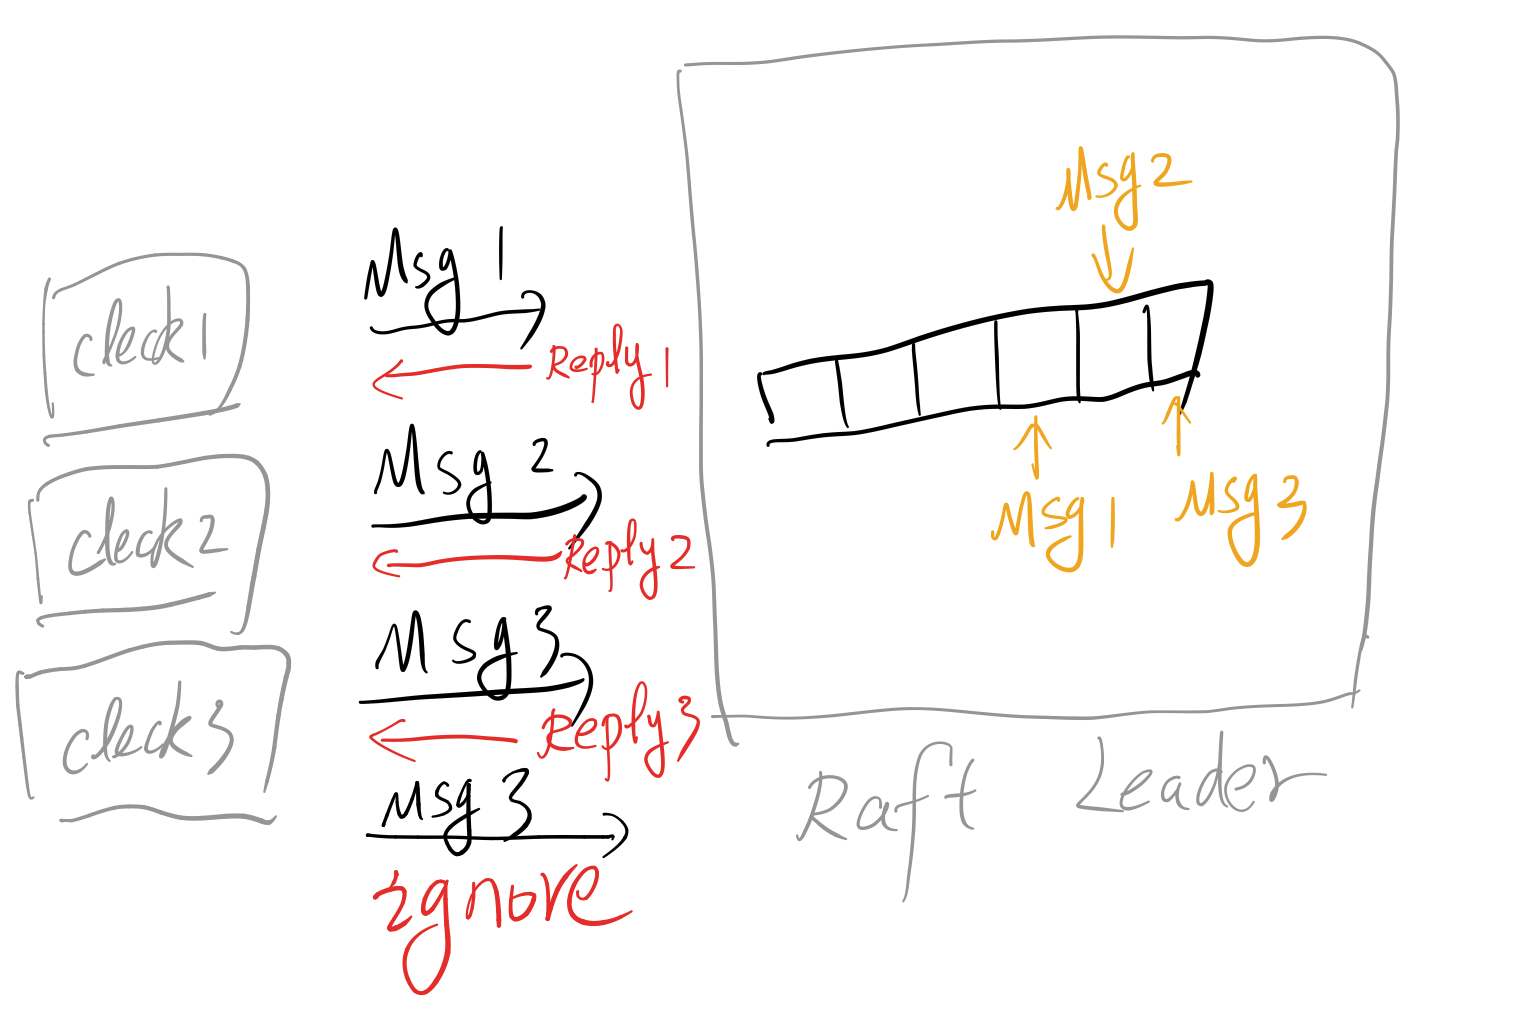 cleck1
cleck2
cleck3
Msg 1
Reply 1
Msg 2
Reply 2
Msg 3
Reply 3
Msg 3
ignore
Msg 2
Msg 1
Msg 3
Raft Leader